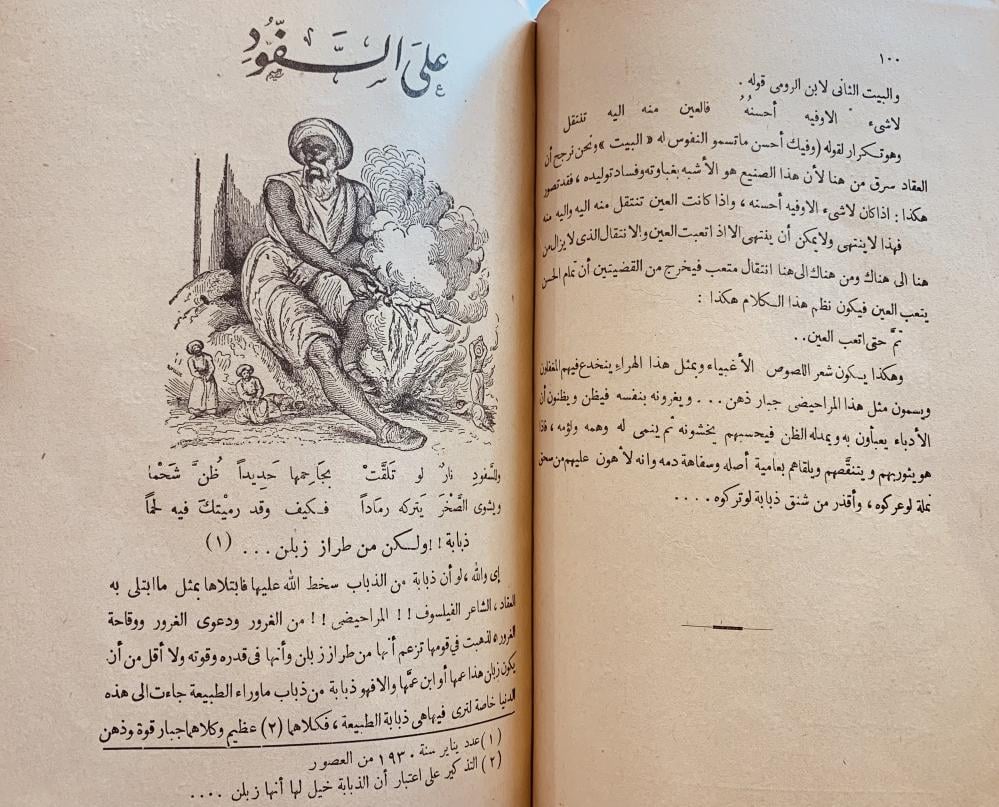 ١٠٠
والبيت الثانى لابن الرومى قوله .
لاشىء الاوفيه أحسنُهُ فالعين منه اليه تنتقل
وهوتكرار لقوله (وفيك أحسن ماتسمو النفوس له « البيت » ونحن نرجح أن
العقاد سرق من هنا لأن هذا الصنيع هو الأشبه بغباوته وفساد توليده ، فقد تصور
هكذا : اذا كان لاشىء الاوفيه أحسنه ، واذا كانت العين تنتقل منه اليه واليه منه
فهذا لاينتهى ولايمكن أن ينتهى الا اذ اتعبت العين والانتقال الذى لايزال من
هنا الى هناك ومن هناك الى هنا انتقال متعب فيخرج من القضيتين أن تمام الحسن
يتعب العين فيكون نظم هذا الكلام هكذا :
تمَّ حتى اتعب العين..
وهكذا يكون شعر اللصوص الأغبياء وبمثل هذا الهراء ينخدع فيهم المغفلون
ويسمون مثل هذا المراحيضى جبار ذهن ... ويغرونه بنفسه فيظن ويظنون أن
الأدباء يعبأون به ويمدله الظن فيحسبهم يخشونه ثم ينمى له وهمه ولؤمه ، فاذا
هو يثوربهم ويتنقَّصهم ويلقاهم بعامية أصله وسفاهة دمه وانه لأهون عليهم من سحق
نملة لوعركوه ، وأقذر من شنق ذبابة لوتركوه ....
على السَّفُّود
٤
وللسفودِ نارٌ لو تلقَّتْ بجاحمها حَديداً ظُنَّ شَحْما
ويشوى الصَّخْرَ يَتركه رمَاداً فكيف وقد رميْتكَ فيه لحمَا
ذبابة !! ولكن من طراز زبلن ... (١)
إى والله ، لو أن ذبابة من الذباب سخط الله عليها فابتلاها بمثل ما ابتلى به
العقاد ، الشاعر الفيلسوف !! المراحيضى !! من الغرور ودعوى الغرور ووقاحة
الغرور ، لذهبت فى قومها تزعم أنها من طراز زبلن وأنها فى قدره وقوته ولا أقل من أن
يكون زبلن هذا عمها أو ابن عمَّها والافهو ذبابة من ذباب ماوراء الطبيعة جاءت الى هذه
الدنيا خاصة لترى فيها هى ذبابة الطبيعة ، فكلاهما (٢) عظيم وكلاهما جبار قوة وذهن
(١) عدد يناير سنة ١٩٣٠ من العصور
(٢) التذكير على اعتبار أن الذبابة خيل لها أنها زبلن ....